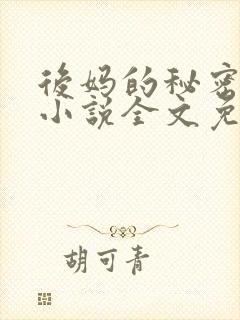 後妈的秘密
小説全文免
胡可青